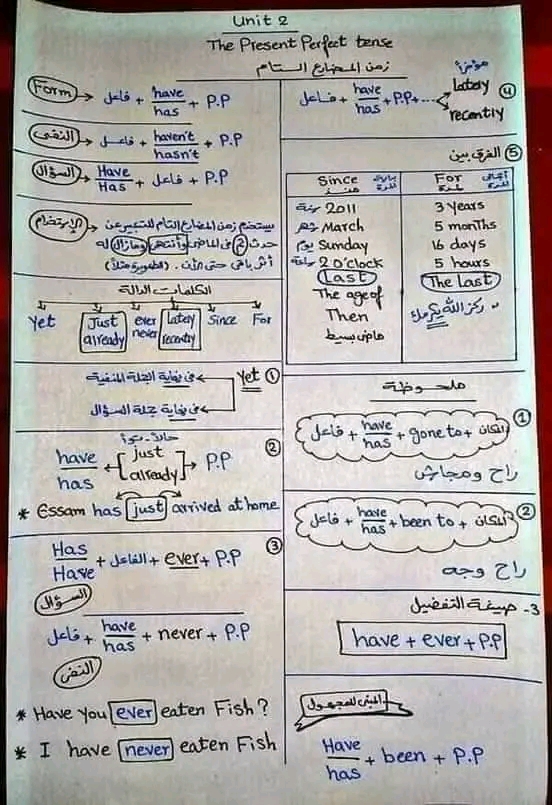 Unit 2
The Present Perfect tense
زمن المضارع التام
Form → فاعل + have/has + P.P
النفى → فاعل + haven't/hasn't + P.P
السؤال → Have/Has + فاعل + P.P
الإستخدام → يستخدم زمن المضارع التام للتعبير عن
حدث فى الماضى وأنتهى ومازال له
أثر باقى حتى الآن.
الكلمات الدالة
Yet Just already ever never Lately recently Since For
Yet ①
فى نهاية الجملة المنفية
فى نهاية جملة السؤال
②
have/has + [just already] → P.P
* Essam has just arrived at home
③
Has/Have + الفاعل + ever + P.P
السؤال
فاعل + have/has + never + P.P
النفى
* Have you ever eaten Fish?
* I have never eaten Fish
④ مؤخرًا
فاعل + have/has + P.P + .... lately recently
⑤ الفرق بين
Since منذ بداية المدة
For لمدة
سنة 2011
3 Years
شهر March
5 months
يوم Sunday
16 days
ساعة 2 O'clock
5 hours
Last
The Last
The age of
Then
ماضى بسيط
ملحوظة
①
فاعل + have/has + gone to + المكان
راح ومجاش
②
فاعل + have/has + been to + المكان
راح وجه
3- صيغة التفضيل
have + ever + P.P
المبنى للمجهول
Have/has + been + P.P